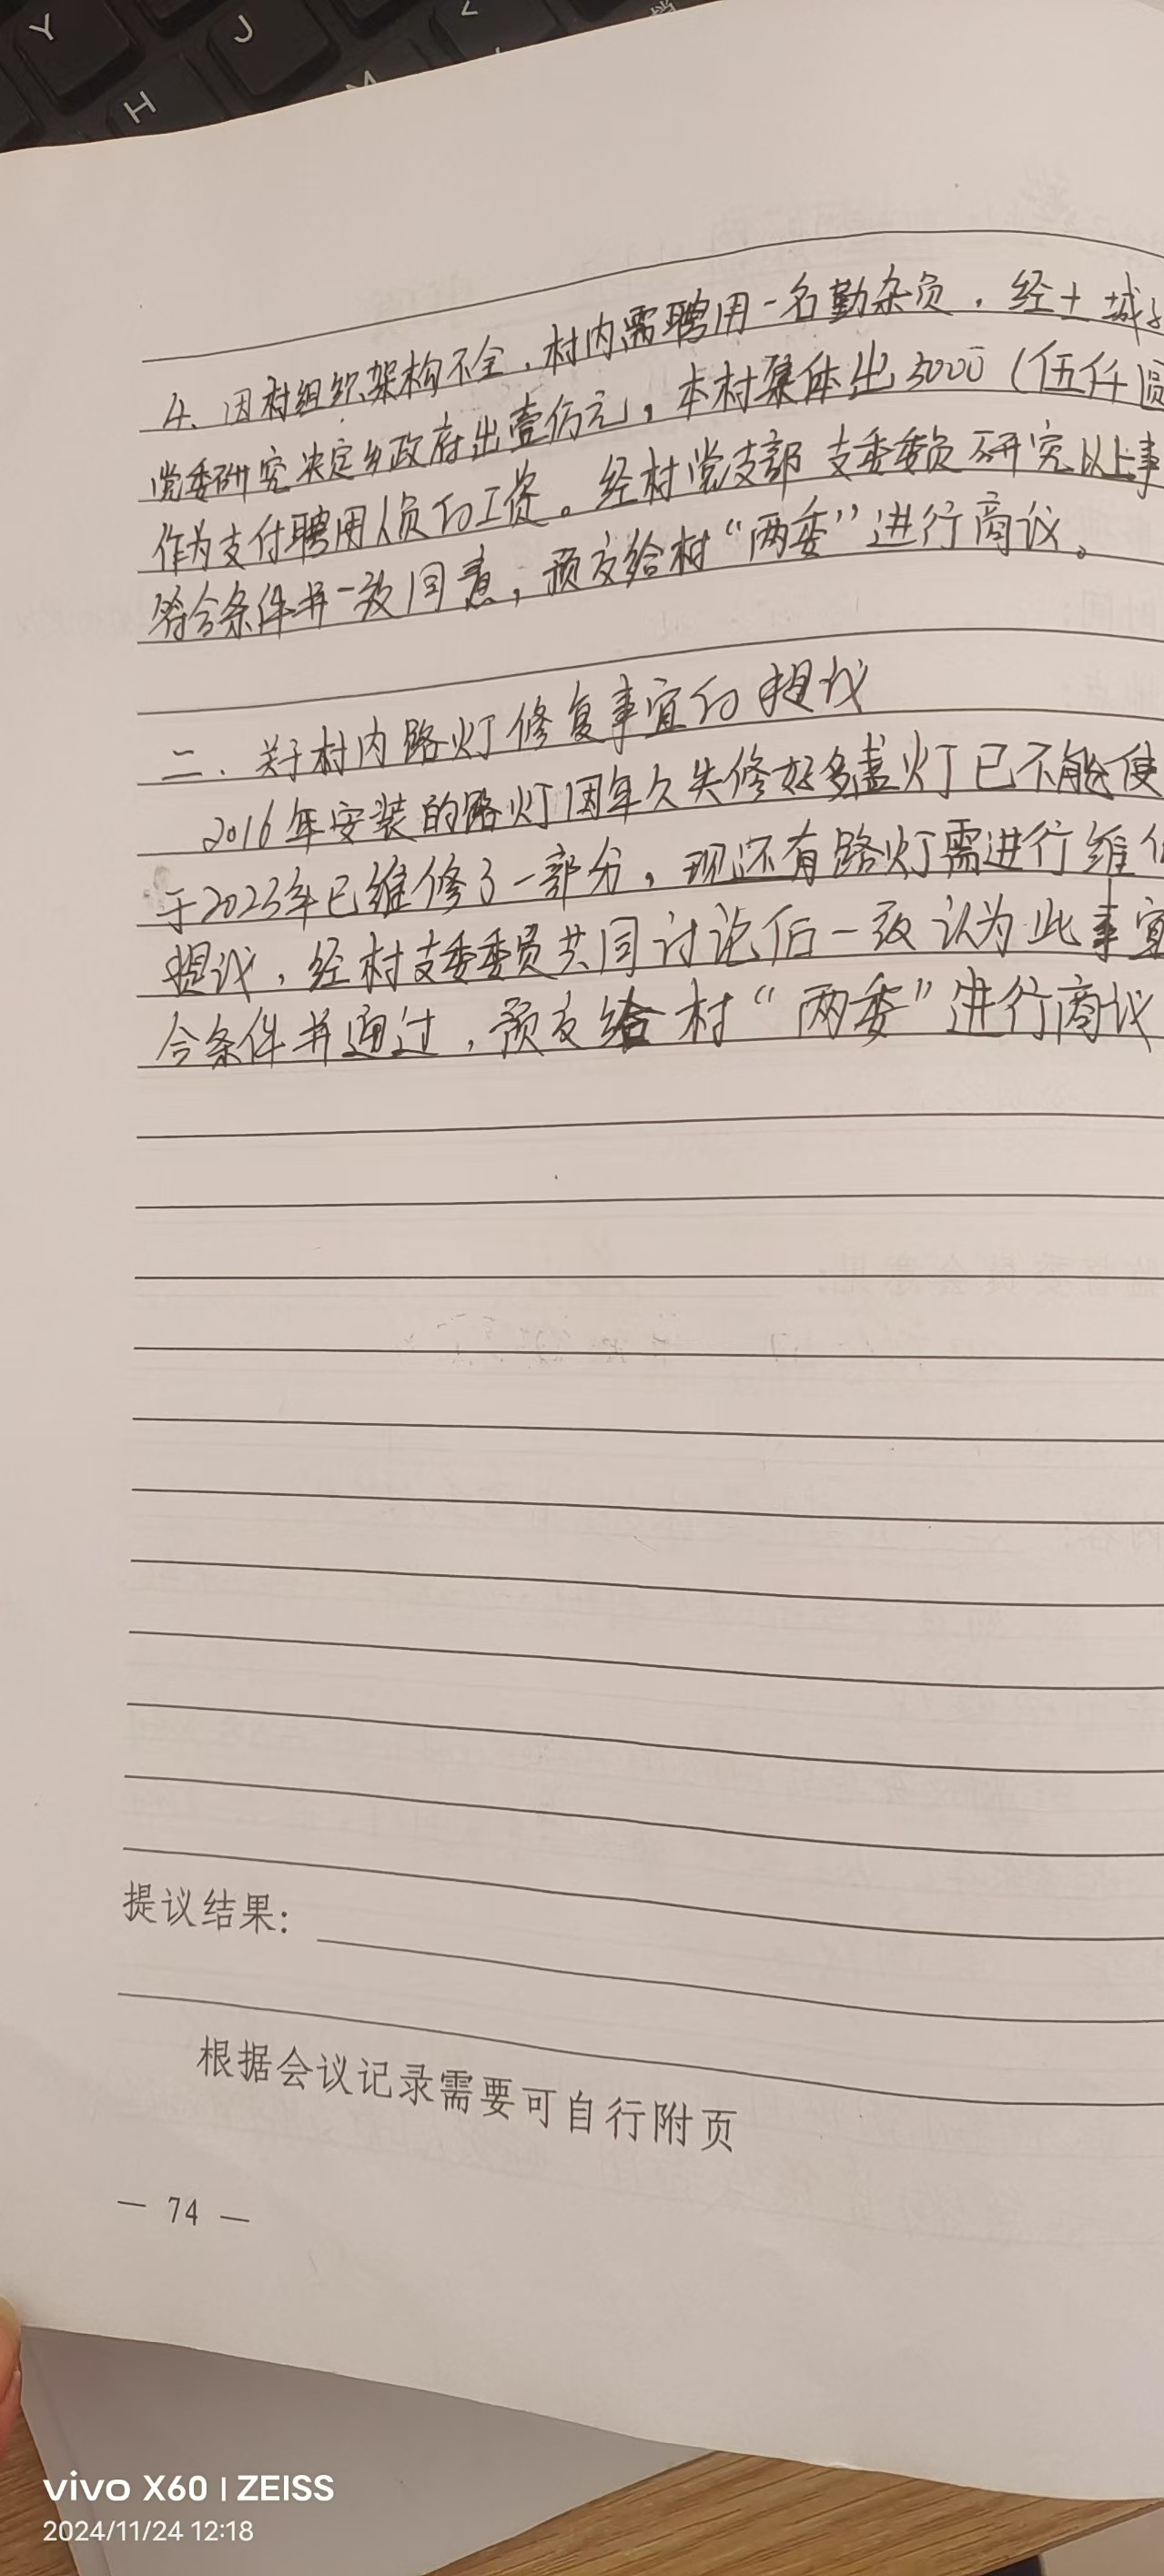 Y
J
H
M
4、因村组织架构不全，村内需聘用一名勤杂员，经土城子
党委研究决定乡政府出壹仟元，本村集体出5000（伍仟圆
作为支付聘用人员的工资。经村党支部支委委员研究以上事
符合条件并一致同意，预交给村“两委”进行商议。
二、关于村内路灯修复事宜的提议
2016年安装的路灯因年久失修好多盏灯已不能使
于2023年已维修了一部分，现还有路灯需进行维修
提议，经村支委委员共同讨论后一致认为此事宜
合条件并通过，预交给村“两委”进行商议
提议结果：
根据会议记录需要可自行附页
— 74 —
vivo X60 | ZEISS
2024/11/24 12:18